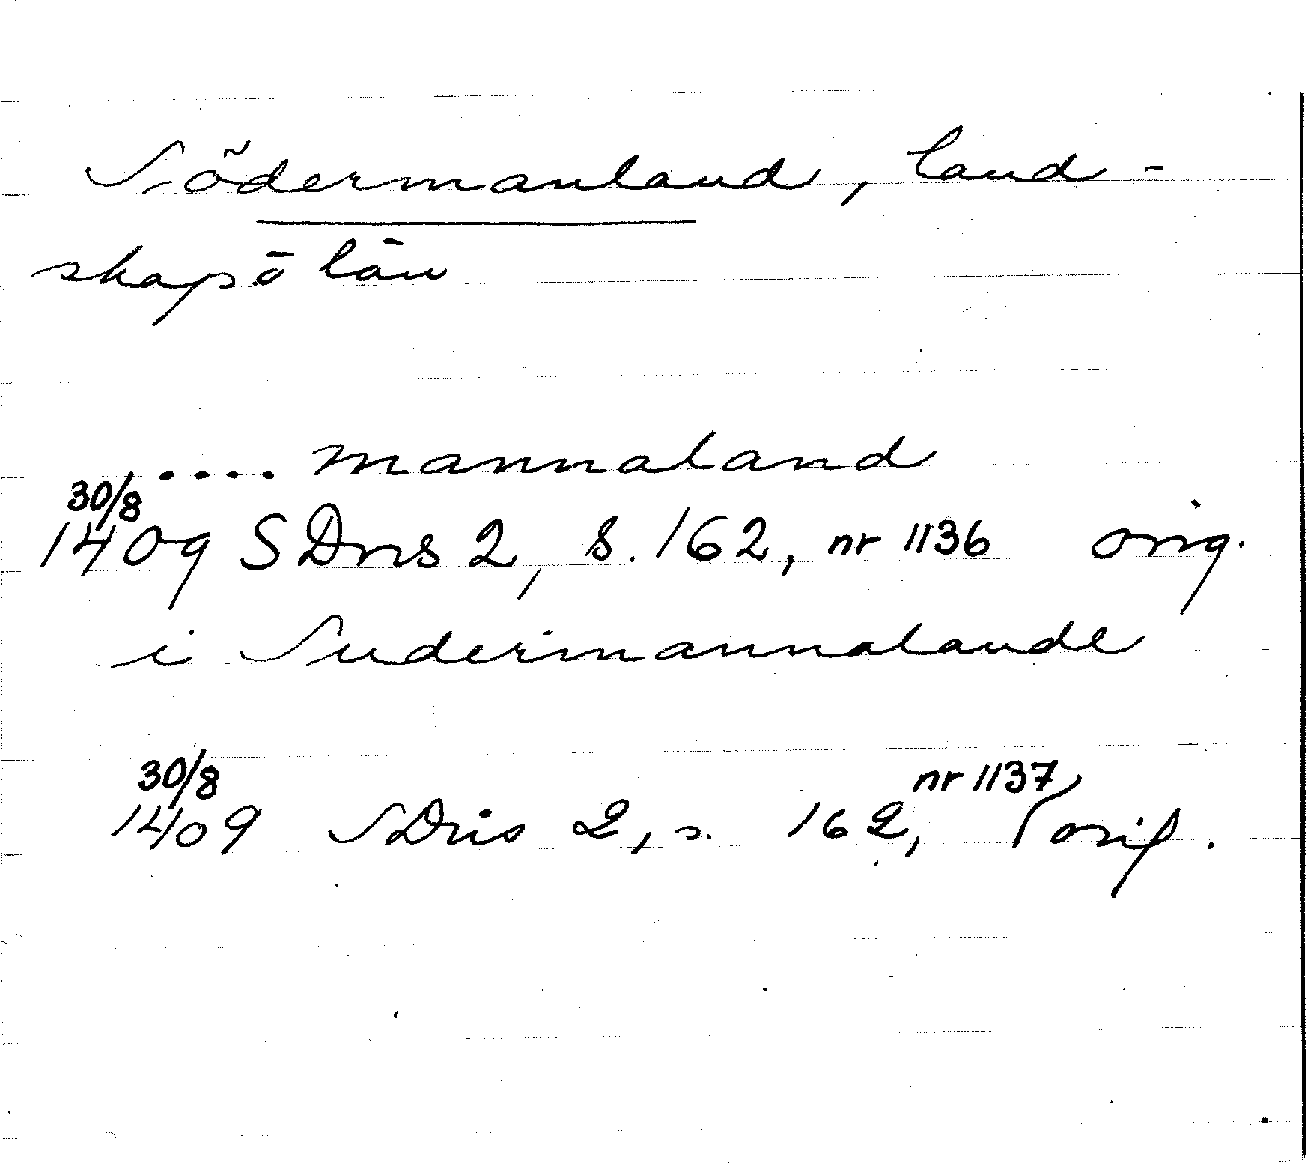 Södermanland, land-
skap ö län
..... mannaland
30/8
1409 SDns 2, s. 162, nr 1136 orig.
i Sudermannalande
30/8 nr 1137
1409 SDns 2, s. 162, orig.